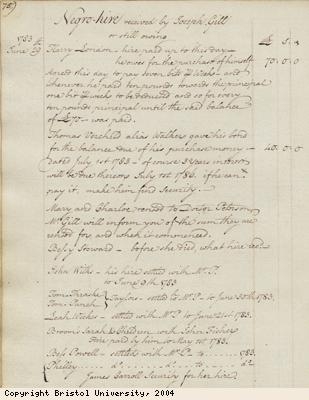 75)
Negro-hire received by Joseph Gill
or still owing
1783 £ S d
June 29 Harry London - hire paid up to this day -
he owes for the purchase of himself 70 . 0 . 0
agreed this day to pay seven bitts Weeks - and
whenever he paid ten pounds towards the principal
one bit Weeks to be deducted and so for every
ten pounds principal until the said balance
of £70 - was paid.
Thomas Verchild alias Walker gave his bond
for the balance due of his purchase money - 40 . 0 . 0
Dated July 1st 1783 - of course 3 years interest
will be due thereon July 1st 1786. if he can't
pay it, make him find Security. -
Mary and Charloe rented to Doctor Peterson
Mr Gill will inform you of the sum they are
rented for, and when it commenced.
Bessy Steward - before she died, what hire rec'd
John Wilks - his hire settled with Mr P.
to June 9th 1783
Tom Peach } Taylors - settled with Mr P - to June 30th 1783.
Leah Weekes - settled with Mr P - to June 21st 1783.
Broom's Sarah & Children with John Fisher
Hire paid by him to May 1st 1783.
Bess Powell - settled with Mr P - to 1783.
Phelley do do to do
James Carroll Security for her hire
Copyright Bristol University, 2004